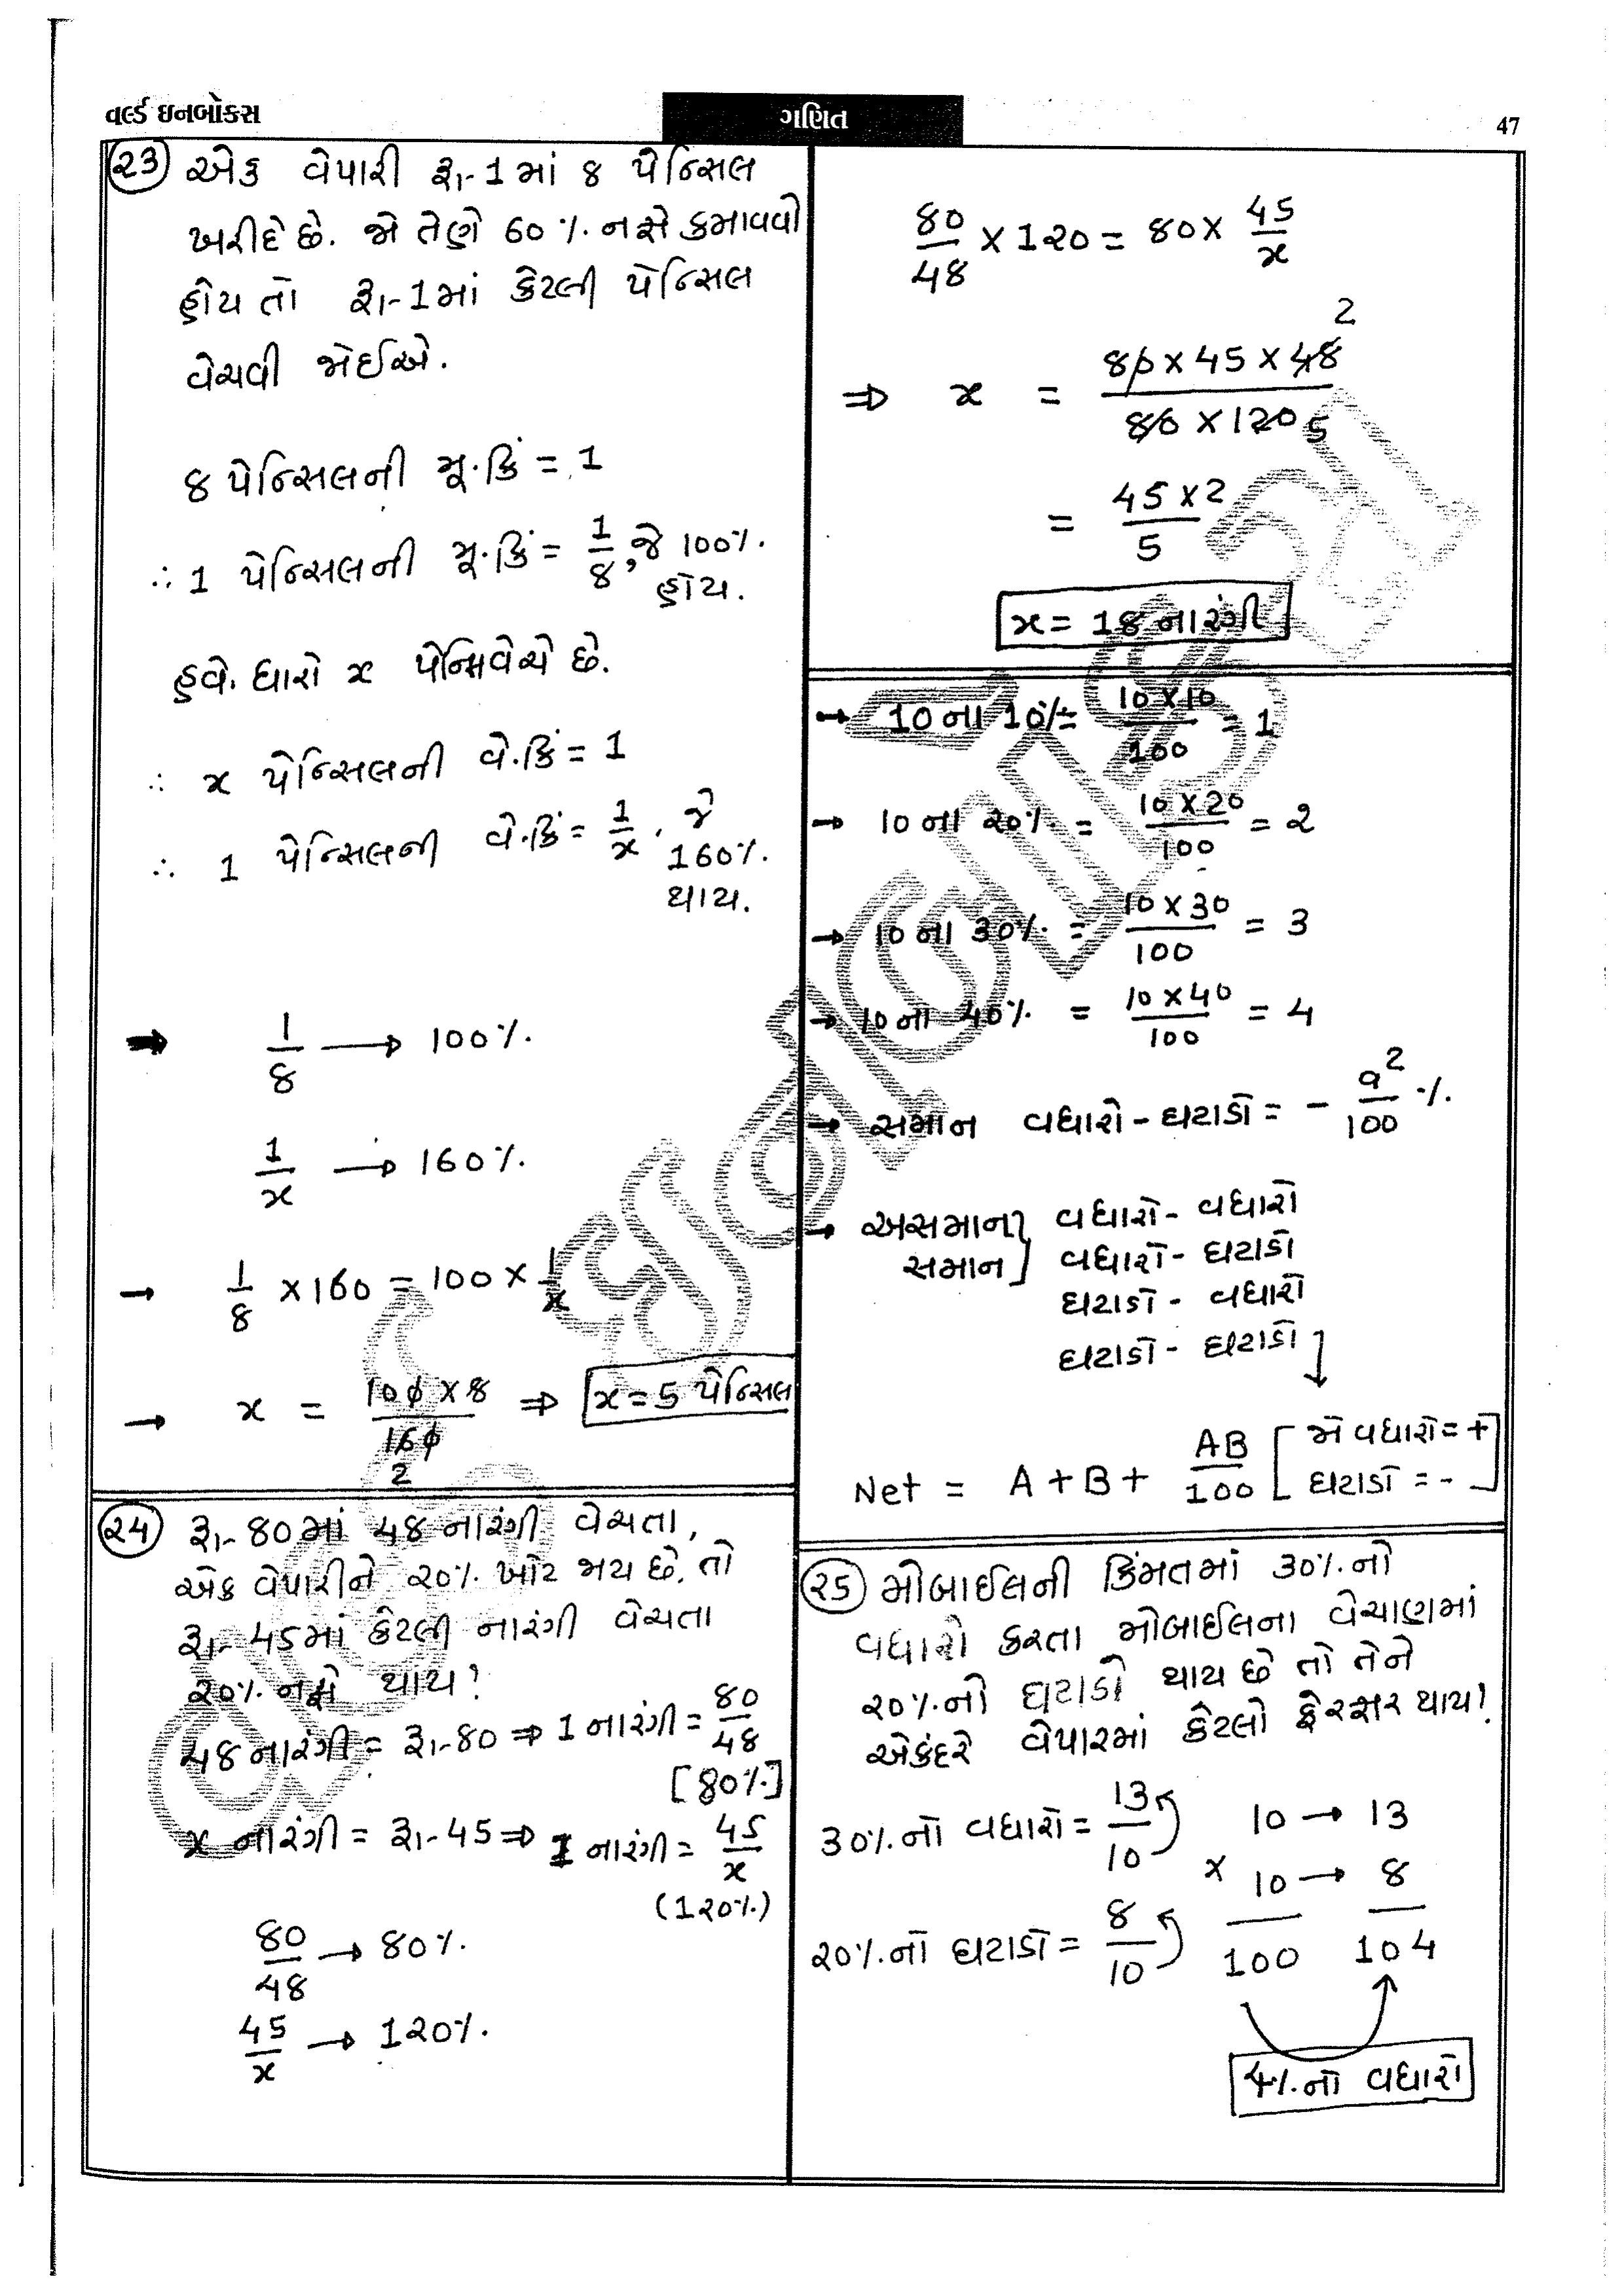 વર્લ્ડ ઇનબોક્સ
ગણિત
47
(23) એક વેપારી રૂા-1માં 8 પેન્સિલ
ખરીદે છે. જો તેણે 60% નફો કમાવવો
હોય તો રૂા-1માં કેટલી પેન્સિલ
વેચવી જોઈએ.
8 પેન્સિલની મૂ.કિં = 1
∴ 1 પેન્સિલની મૂ.કિં = 1/8, જે 100%
હોય.
હવે. ધારો x પેન્સિ વેચે છે.
∴ x પેન્સિલની વે.કિં = 1
∴ 1 પેન્સિલની વે.કિં = 1/x, જે
160%.
થાય.
⇒ 1/8 → 100%.
1/x → 160%.
→ 1/8 × 160 = 100 × 1/x
→ x = 100 × 8 / 160 ⇒ x = 5 પેન્સિલ
2
(24) રૂા-80માં 48 નારંગી વેચતા,
એક વેપારીને 20% ખોટ જાય છે, તો
રૂા-45માં કેટલી નારંગી વેચતા
20% નફો થાય?
48 નારંગી = રૂા-80 ⇒ 1 નારંગી = 80/48
[80%]
x નારંગી = રૂા-45 ⇒ 1 નારંગી = 45/x
(120%)
80/48 → 80%.
45/x → 120%.
80/48 × 120 = 80 × 45/x
2
⇒ x = 80 × 45 × 48 / 80 × 120 5
= 45 × 2 / 5
x = 18 નારંગી
→ 10 ના 10% = 10 × 10 / 100 = 1
→ 10 ના 20% = 10 × 20 / 100 = 2
→ 10 ના 30% = 10 × 30 / 100 = 3
→ 10 ના 40% = 10 × 40 / 100 = 4
→ સમાન વધારો - ઘટાડો = - a²/100 %.
→ અસમાન] વધારો - વધારો
સમાન] વધારો - ઘટાડો
ઘટાડો - વધારો
ઘટાડો - ઘટાડો
Net = A + B + AB/100 [જો વધારો = +
ઘટાડો = -]
(25) મોબાઈલની કિંમતમાં 30% નો
વધારો કરતા મોબાઈલના વેચાણમાં
20% નો ઘટાડો થાય છે તો તેને
એકંદરે વેપારમાં કેટલો ફેરફાર થાય?
30% નો વધારો = 13/10 10 → 13
× 10 → 8
20% નો ઘટાડો = 8/10 100 104
4% નો વધારો